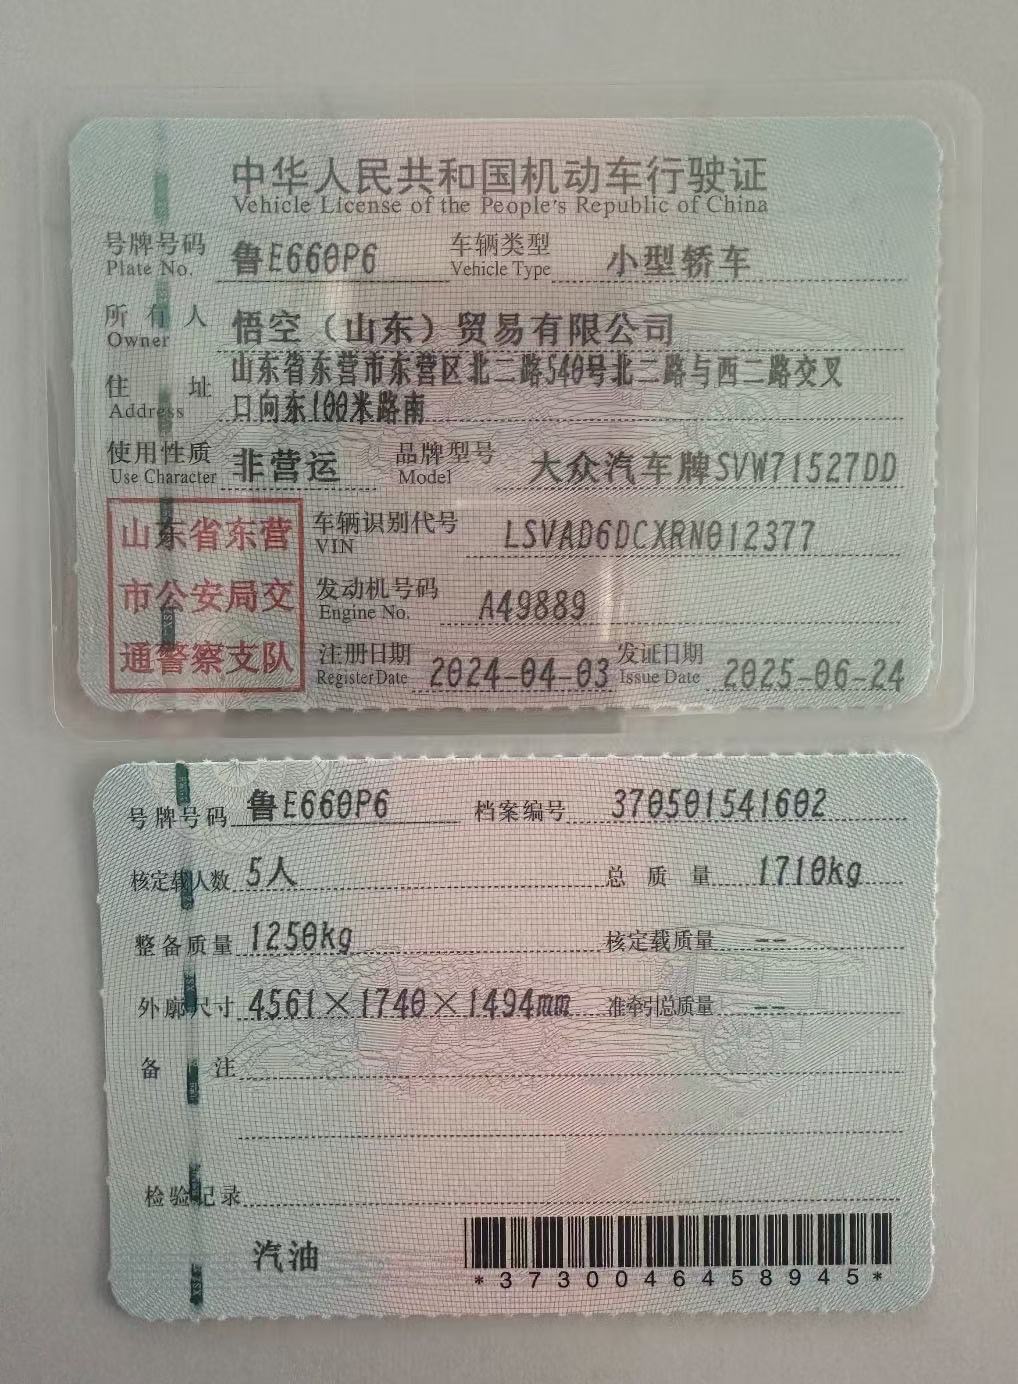 中华人民共和国机动车行驶证
Vehicle License of the People's Republic of China
号牌号码 鲁E660P6 车辆类型 小型轿车
Plate No. Vehicle Type
所有人 悟空（山东）贸易有限公司
Owner
住址 山东省东营市东营区北二路540号北二路与西二路交叉
Address 口向东100米路南
使用性质 非营运 品牌型号 大众汽车牌SVW71527DD
Use Character Model
山东省东营
市公安局交
通警察支队
车辆识别代号 LSVAD6DCXRN012377
VIN
发动机号码 A49889
Engine No.
注册日期 2024-04-03 发证日期 2025-06-24
Register Date Issue Date
号牌号码 鲁E660P6 档案编号 370501541602
核定载人数 5人 总质量 1710kg
整备质量 1250kg 核定载质量 --
外廓尺寸 4561×1740×1494mm 准牵引总质量 --
备注
检验记录
汽油
*3730046458945*